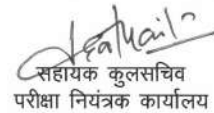 सहायक कुलसचिव
परीक्षा नियंत्रक कार्यालय